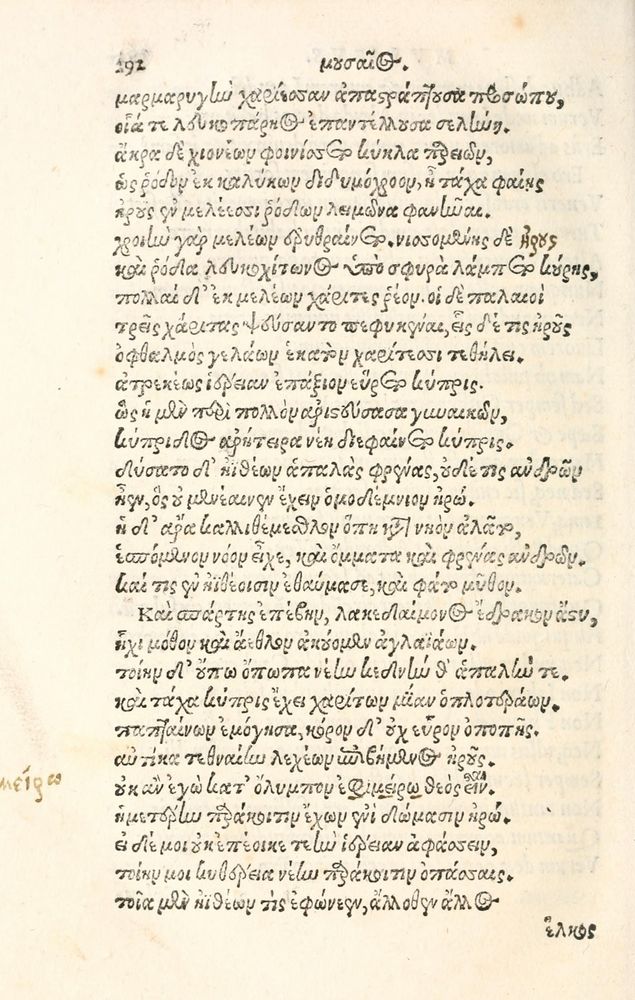 192 μουσαῖος.
μαρμαρυγὴν χαρίεσσαν ἀπαστράπτουσα προσώπου,
οἷά τε λευκοπάρῃος ἐπαντέλλουσα σελήνη.
ἄκρα δὲ χιονέων φοινίσσετο κύκλα παρειῶν,
ὡς ῥόδον ἐκ καλύκων διδυμόχροον, ἦ τάχα φαίης
ἡροῦς ἐν μελέεσσι ῥόδων λειμῶνα φανῆναι.
χροιὴν γὰρ μελέων ἐρυθραίνετο. νισσομένης δὲ ἡροῦς
καὶ ῥόδα λευκοχίτωνος ὑπὸ σφυρὰ λάμπετο κούρης,
πολλαὶ δ' ἐκ μελέων χάριτες ῥέον. οἱ δὲ παλαιοὶ
τρεῖς χάριτας ψεύσαντο πεφυκηναι, εἷς δέ τις ἡροῦς
ὀφθαλμὸς γελάων ἑκατὸν χαρίτεσσι τεθήλει.
ἀτρεκέως ἱέρειαν ἐπάξιον εὕρετο κύπρις.
ὣς ἡ μὲν περὶ πολλὸν ἀριστεύσασα γυναικῶν,
κύπριδος ἀρήτειρα νέη διεφαίνετο κύπρις.
δύσατο δ' ἠϊθέων ἁπαλὰς φρένας, οὐδέ τις ἀνδρῶν
ἦεν, ὃς οὐ μενέαινεν ἔχειν ὁμοδέμνιον ἡρώ.
ἡ δ' ἄρα καλλιθέμεθλον ὅπῃ κατὰ νηὸν ἀλᾶτο,
ἑσπόμενον νόον εἶχε, καὶ ὄμματα καὶ φρένας ἀνδρῶν.
καί τις ἐν ἠϊθέοισιν ἐθαύμασε, καὶ φάτο μῦθον.
Καὶ σπάρτης ἐπέβην, λακεδαίμονος ἔδρακον ἄστυ,
ἧχι μόθον καὶ ἄεθλον ἀκούομεν ἀγλαϊάων.
τοίην δ' οὔπω ὄπωπα νέην κεδνήν θ' ἁπαλήν τε.
καὶ τάχα κύπρις ἔχει χαρίτων μίαν ὁπλοτεράων.
παπταίνων ἐμόγησα, κόρον δ' οὐχ εὗρον ὀπωπῆς.
αὐτίκα τεθναίην λεχέων ἐπιβήμενος ἡροῦς.
οὐκ ἂν ἐγὼ κατ' ὄλυμπον ἐφιμείρω θεὸς εἶναι.
ἡμετέρην παράκοιτιν ἔχων ἐνὶ δώμασιν ἡρώ.
εἰ δέ μοι οὐκ ἐπέοικε τεὴν ἱέρειαν ἀφάσσειν,
τοίην μοι κυθέρεια νέην παράκοιτιν ὀπάσσαις.
τοῖα μὲν ἠϊθέων τὶς ἐφώνεεν, ἄλλοθεν ἄλλος
ἕλκος